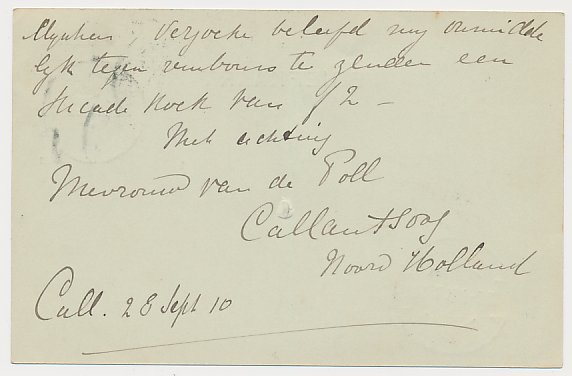 Mynheer, Verzoeke beleefd my onmiddel
lyk tegen rembours te zenden een
koek van f2 –
Met achting
Mevrouw van de Poll
Callantsoog
Noord Holland
Call. 28 Sept 10